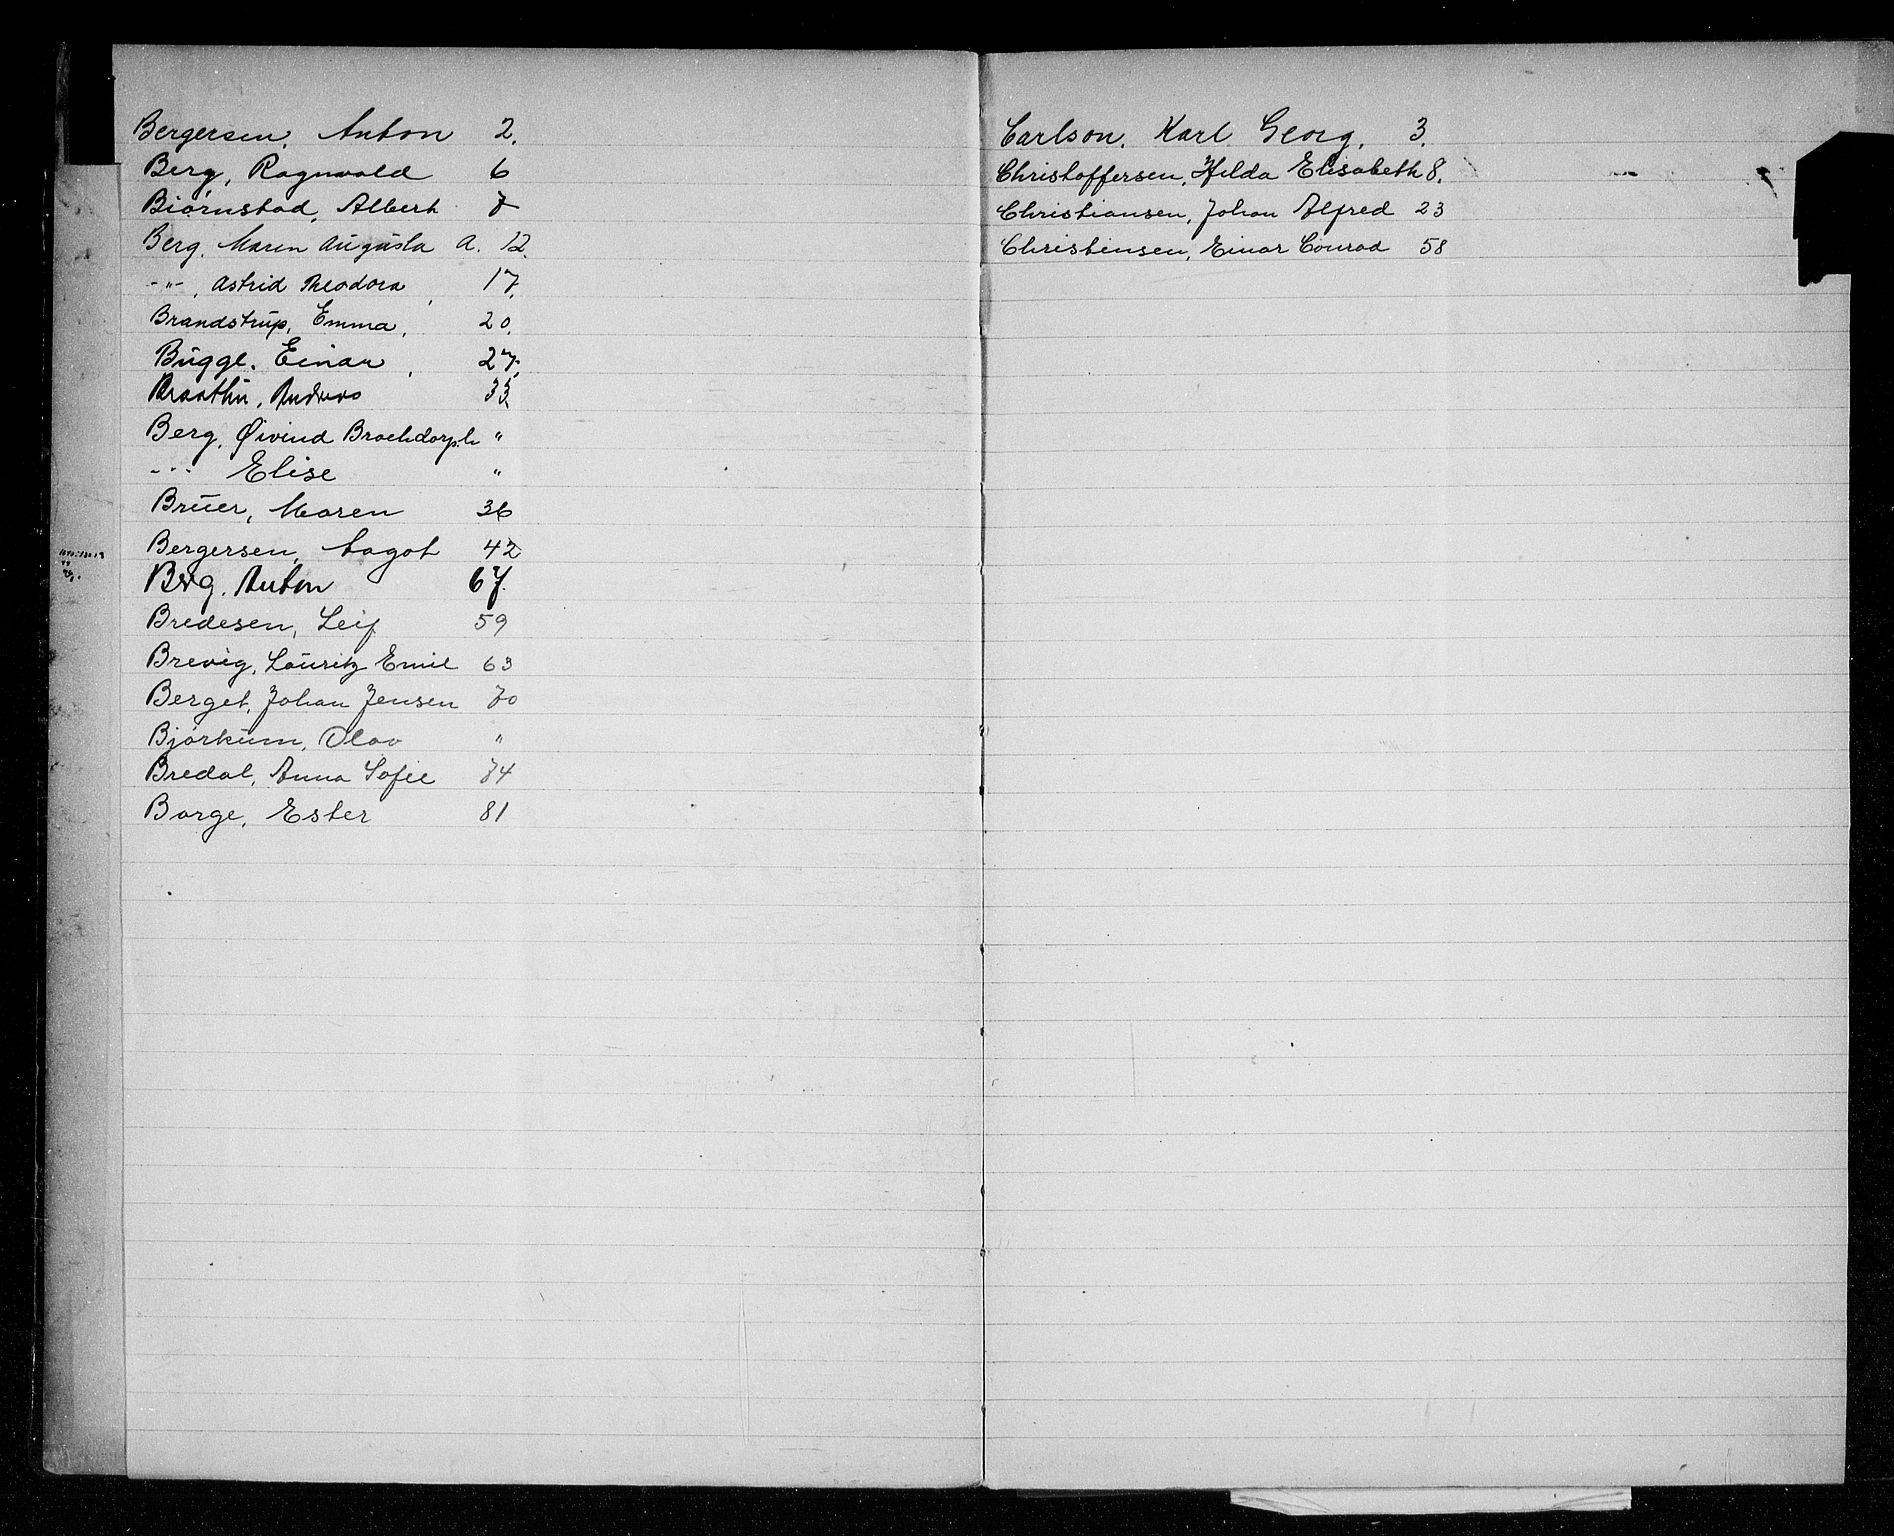 Bergersen, Anton 2.
Berg, Ragnvald 6
Biørnstad, Albert 7
Berg, Maren Augusta A. 12.
-"-, Astrid Theodora, 17.
Brandstrup, Emma, 20.
Bugge, Einar, 27.
Braathu, Andreas 33.
Berg, Øivind Brochdorph "
-"- Elise "
Bruer, Maren 36
Bergersen, Aagot 42
Berg, Anton 67.
Bredesen, Leif 59
Brevig, Lauritz Emil 63
Berget, Johan Jensen 70
Bjørkum, Olav "
Bredal, Anna Sofie 74
Borge, Ester 81
Carlson, Karl Georg, 3.
Christoffersen, Hilda Elisabeth 8.
Christiansen, Johan Alfred 23
Christensen, Einar Conrad 58